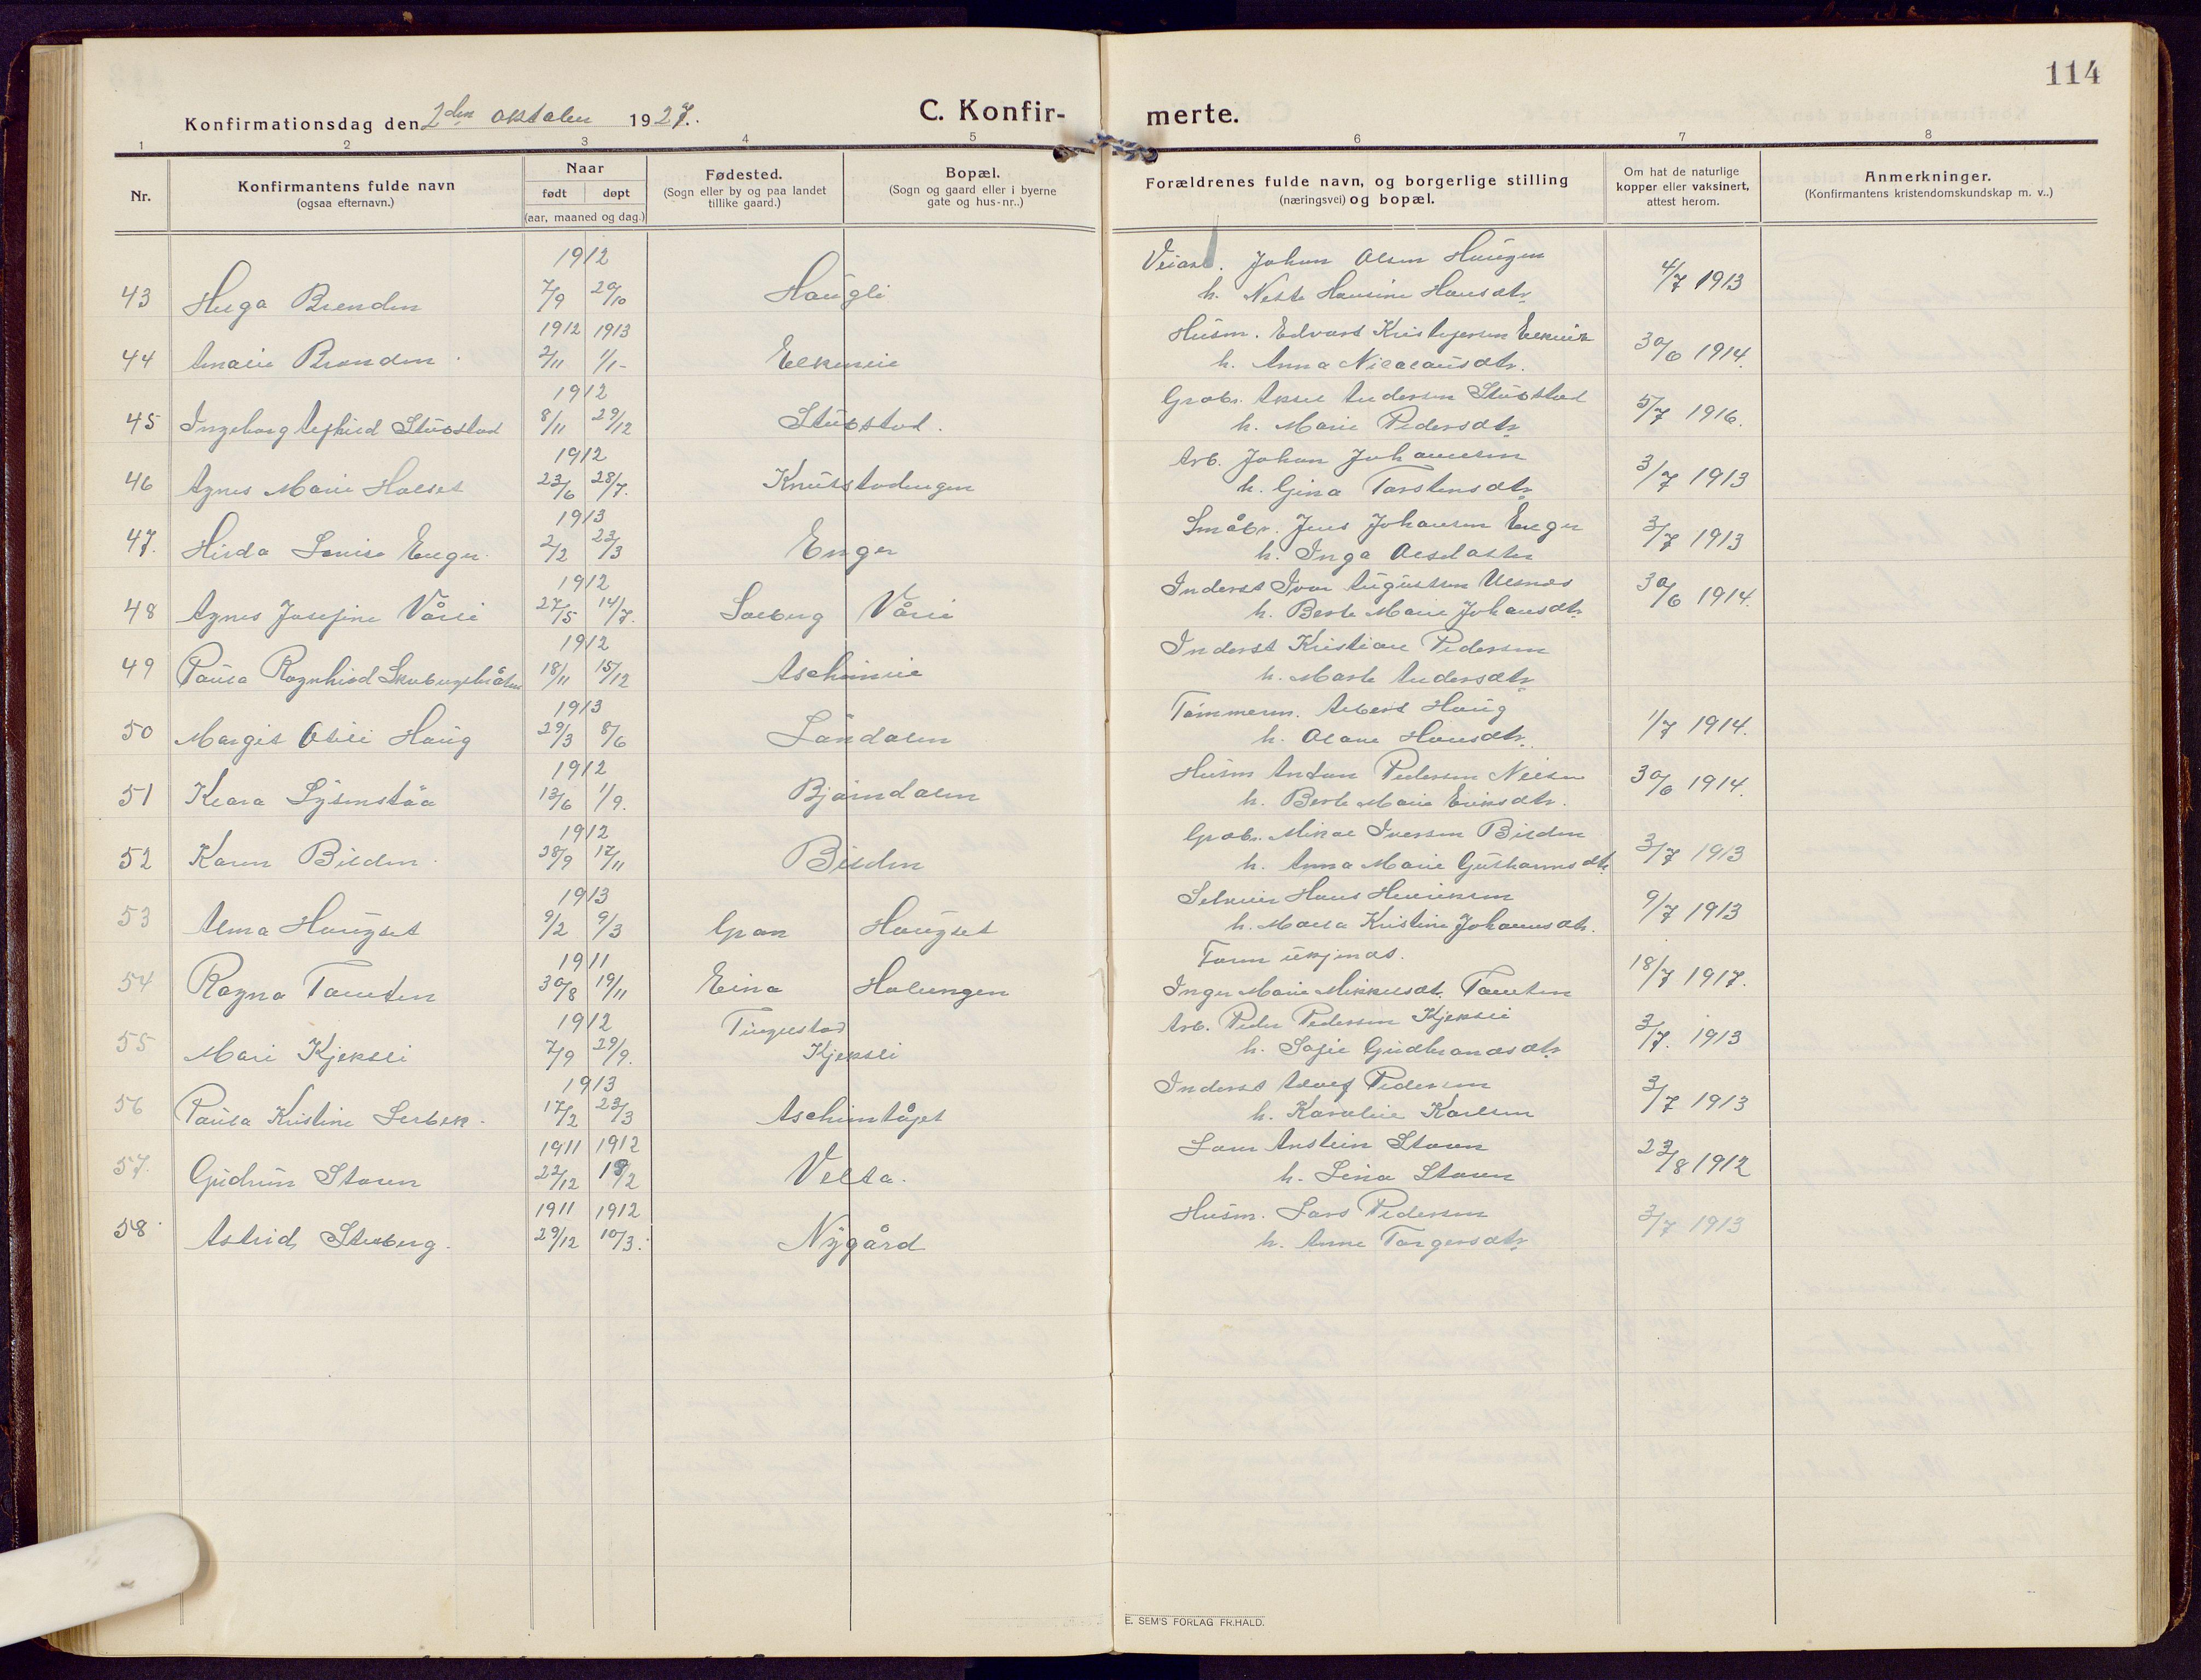 114
Konfirmationsdag den 2den oktober 1927.
C. Konfir-
merte.
1 2 3 4 5 6 7 8
Nr.
Konfirmantens fulde navn
(ogsaa efternavn.)
Naar
født døpt
(aar, maaned og dag.)
Fødested.
(Sogn eller by og paa landet
tillike gaard.)
Bopæl.
(Sogn og gaard eller i byerne
gate og hus-nr..)
Forældrenes fulde navn, og borgerlige stilling
(næringsvei) og bopæl.
Om hat de naturlige
kopper eller vaksinert,
attest herom.
Anmerkninger.
(Konfirmantens kristendomskundskap m. v..)
1912 Veiarb. Johan Olsen Haugen
43 Helga Brenden 7/9 20/10 Haugli h. Nette Hansine Hansdtr. 4/7 1913
1912 1913 Husm. Edvard Kristofersen
44 Amalie Brenden 2/11 1/1 h. Anna Nicolausdtr. 30/6 1914.
1912 Grdbr. Aksel Andersen Stubstad
45 Ingeborg Stubstad 8/11 29/12 Stubstad. h. Marie Pedersdtr. 5/7 1916.
1912 Arb. Johan Johannesen
46 Agnes Marie Holset 23/6 28/7. Knutstadengen h. Gina Torstensdtr. 3/7 1913
1913 Småbr. Jens Johansen Enger
47. Hilda Lovise Enger 2/2 23/3 Enger h. Inga Olsdatter 3/7 1913
1912 Inderst Ivar Augustsen Ulsnes
48 Agnes Josefine Vårli 27/5 14/7. Solberg Vårli h. Berte Marie Johansdtr. 30/6 1914.
1912 Inderst Kristian Pedersen
49 Paula Ragnhild 18/11 15/12 Aschimlie h. Marte Andersdtr.
1913 Tømmerm. Albert Haug
50 Margit Otili Haug 29/3 8/6 Landalen h. Olave Hansdtr. 1/7 1914.
1912 Husm Anton Pedersen Nilsen
51 Klara 13/6 1/9. Bjørndalen h. Berte Marie Eriksdtr. 30/6 1914.
1912 Grdbr. Mikal Iversen Bilden
52 Karen Bilden 28/9 17/11 Bilden h. Anna Marie Gulhannsdtr. 3/7 1913
1913 Selveier Hans Henriksen
53 Alma Haugset 9/2 9/3 Gran Haugset h. Kristine Johannsdtr. 9/7 1913
1911 Faren ukjendt.
54 Ragna Tomten 30/8 19/11 Eina Halungen Inger Marie Mikkelsdt. Tomten 18/7 1917.
1912 Tingelstad Arb. Peder Pedersen Kjeksli
55 Mari Kjeksli 7/9 29/9. Kjeksli h. Sofie Gudbrandsdtr. 3/7. 1913
1913 Inderst Adolf Pedersen
56 Paula Kristine Lerbek. 17/2 23/3 Aschimtåjet h. Karoline Karlsen 3/7 1913
1911 1912 Anstein Støren
57. Gudrun Støren 22/12 18/2 Velta. h. Lina Støren 23/8 1912
1911 1912 Husm. Lars Pedersen
58. Astrid Stuberg. 29/12 10/3. Nygård h. Anne Torgersdtr. 3/7 1913
E. SEM'S FORLAG FR.HALD.